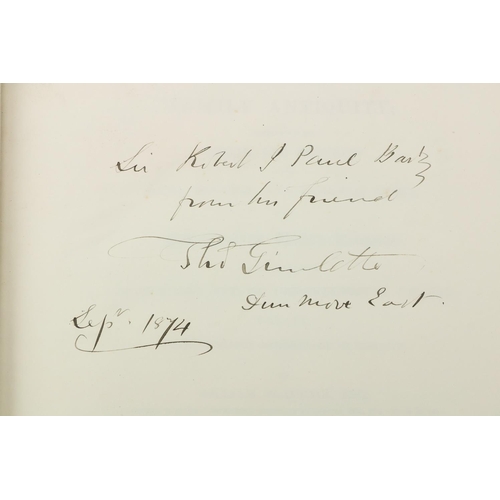 Sir Robert J Paul Bart
from his friend
Thos Gimlette
Dunmore East.
Sepr. 1874